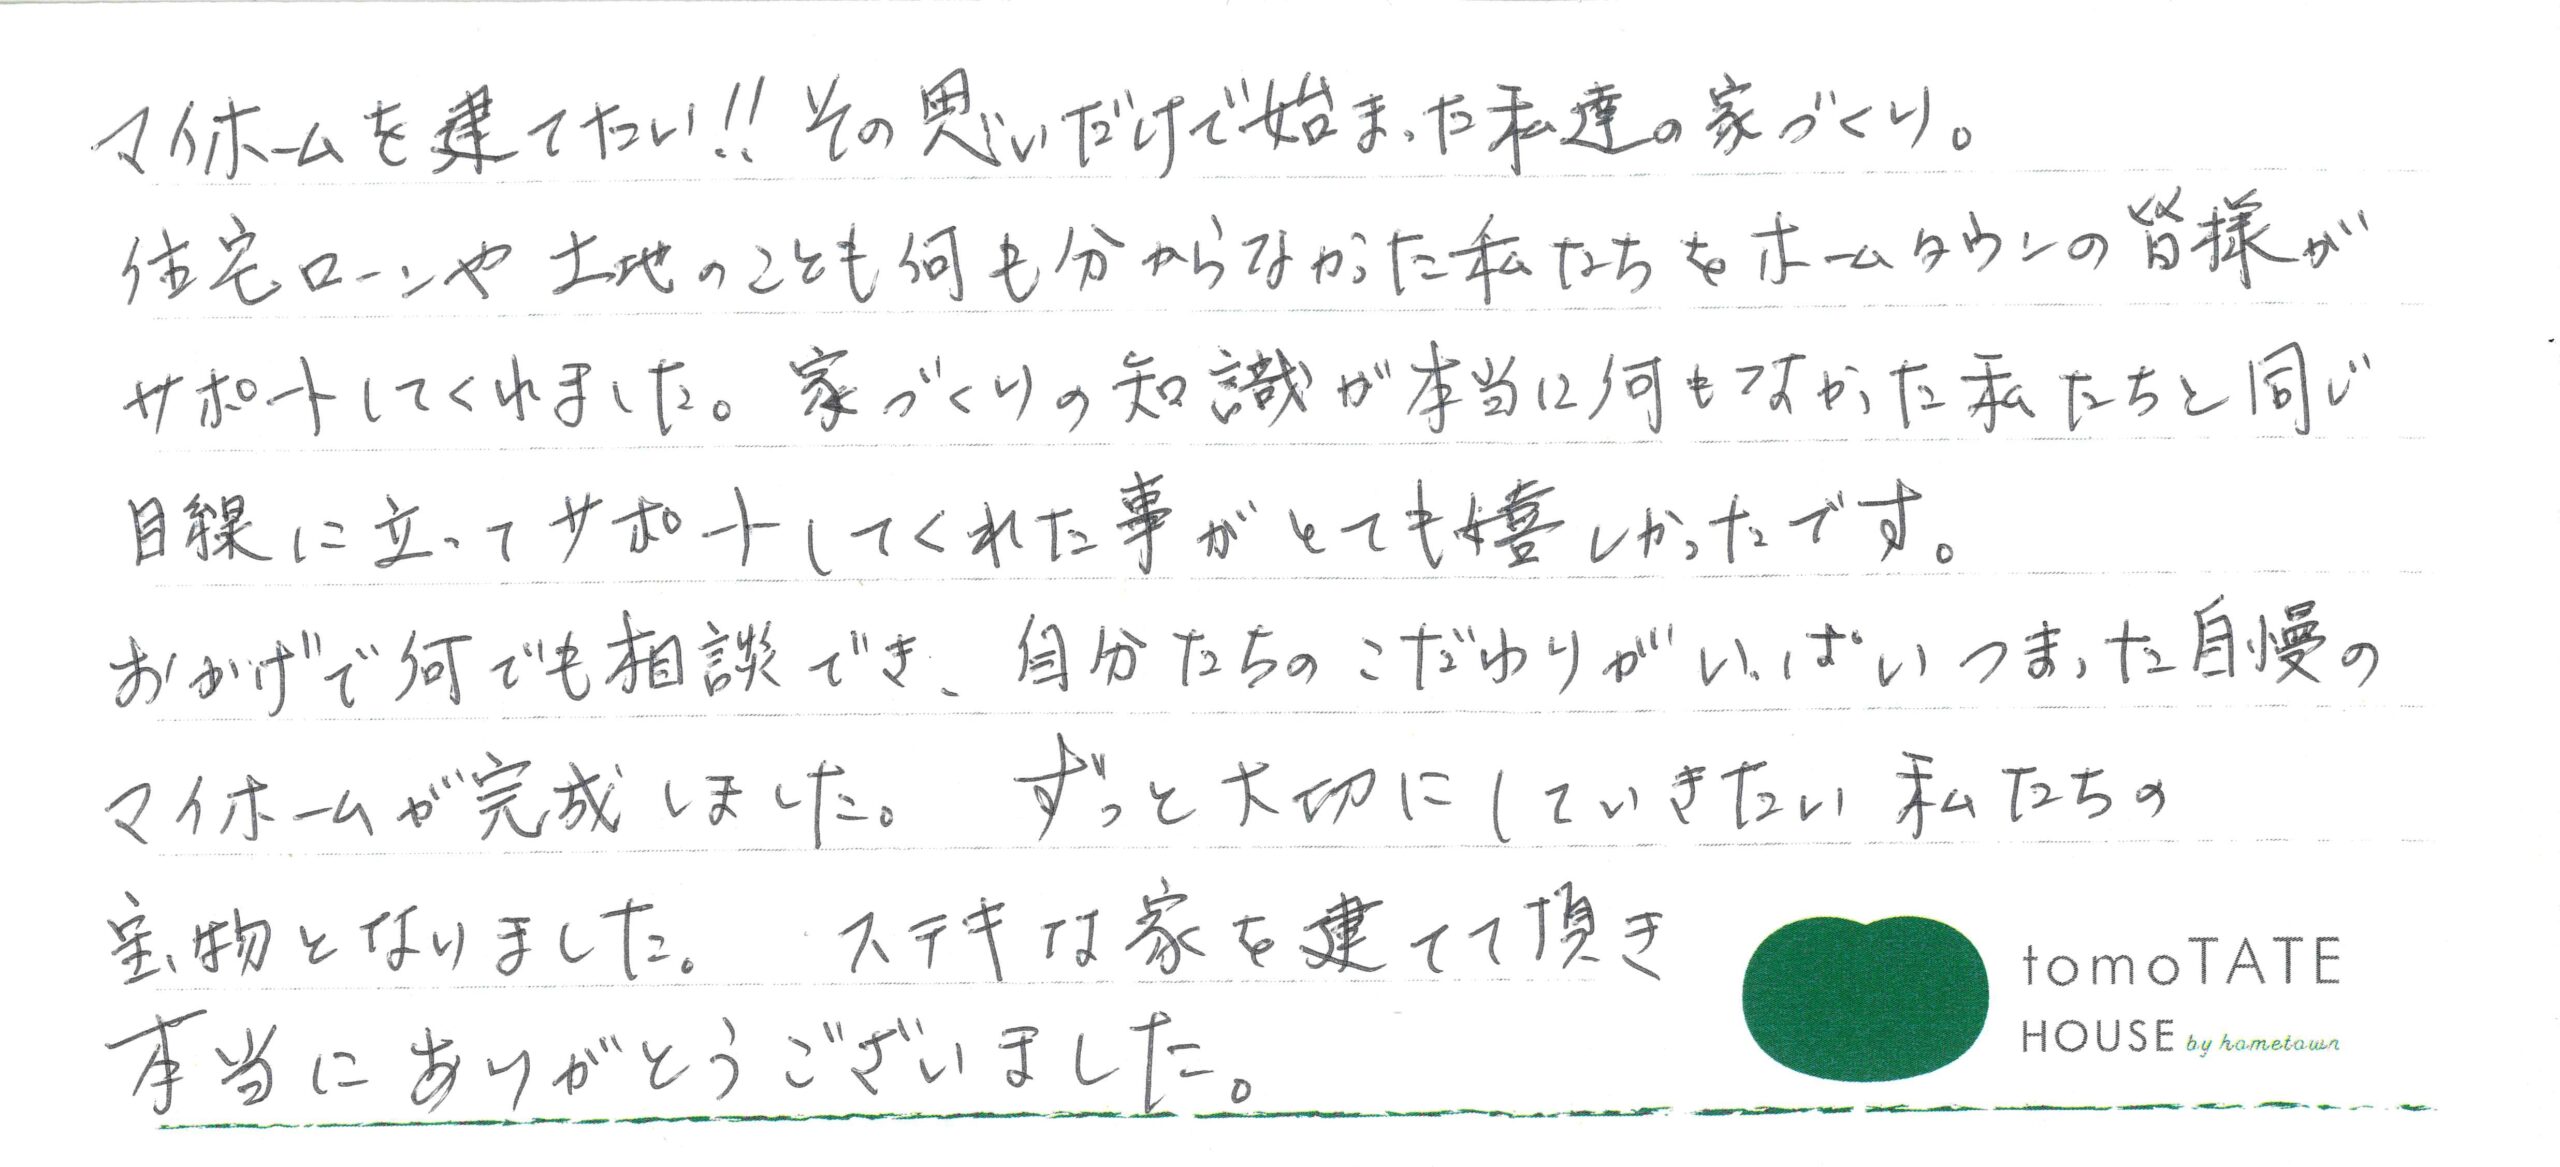 マイホームを建てたい!! その思いだけで始まった私達の家づくり。
住宅ローンや土地のことも何も分からなかった私たちをホームタウンの皆様が
サポートしてくれました。家づくりの知識が本当に何もなかった私たちと同じ
目線に立ってサポートしてくれた事がとても嬉しかったです。
おかげで何でも相談でき、自分たちのこだわりがいっぱいつまった自慢の
マイホームが完成しました。 ずっと大切にしていきたい私たちの
宝物となりました。 ステキな家を建てて頂き
本当にありがとうございました。
tomoTATE
HOUSE by hometown